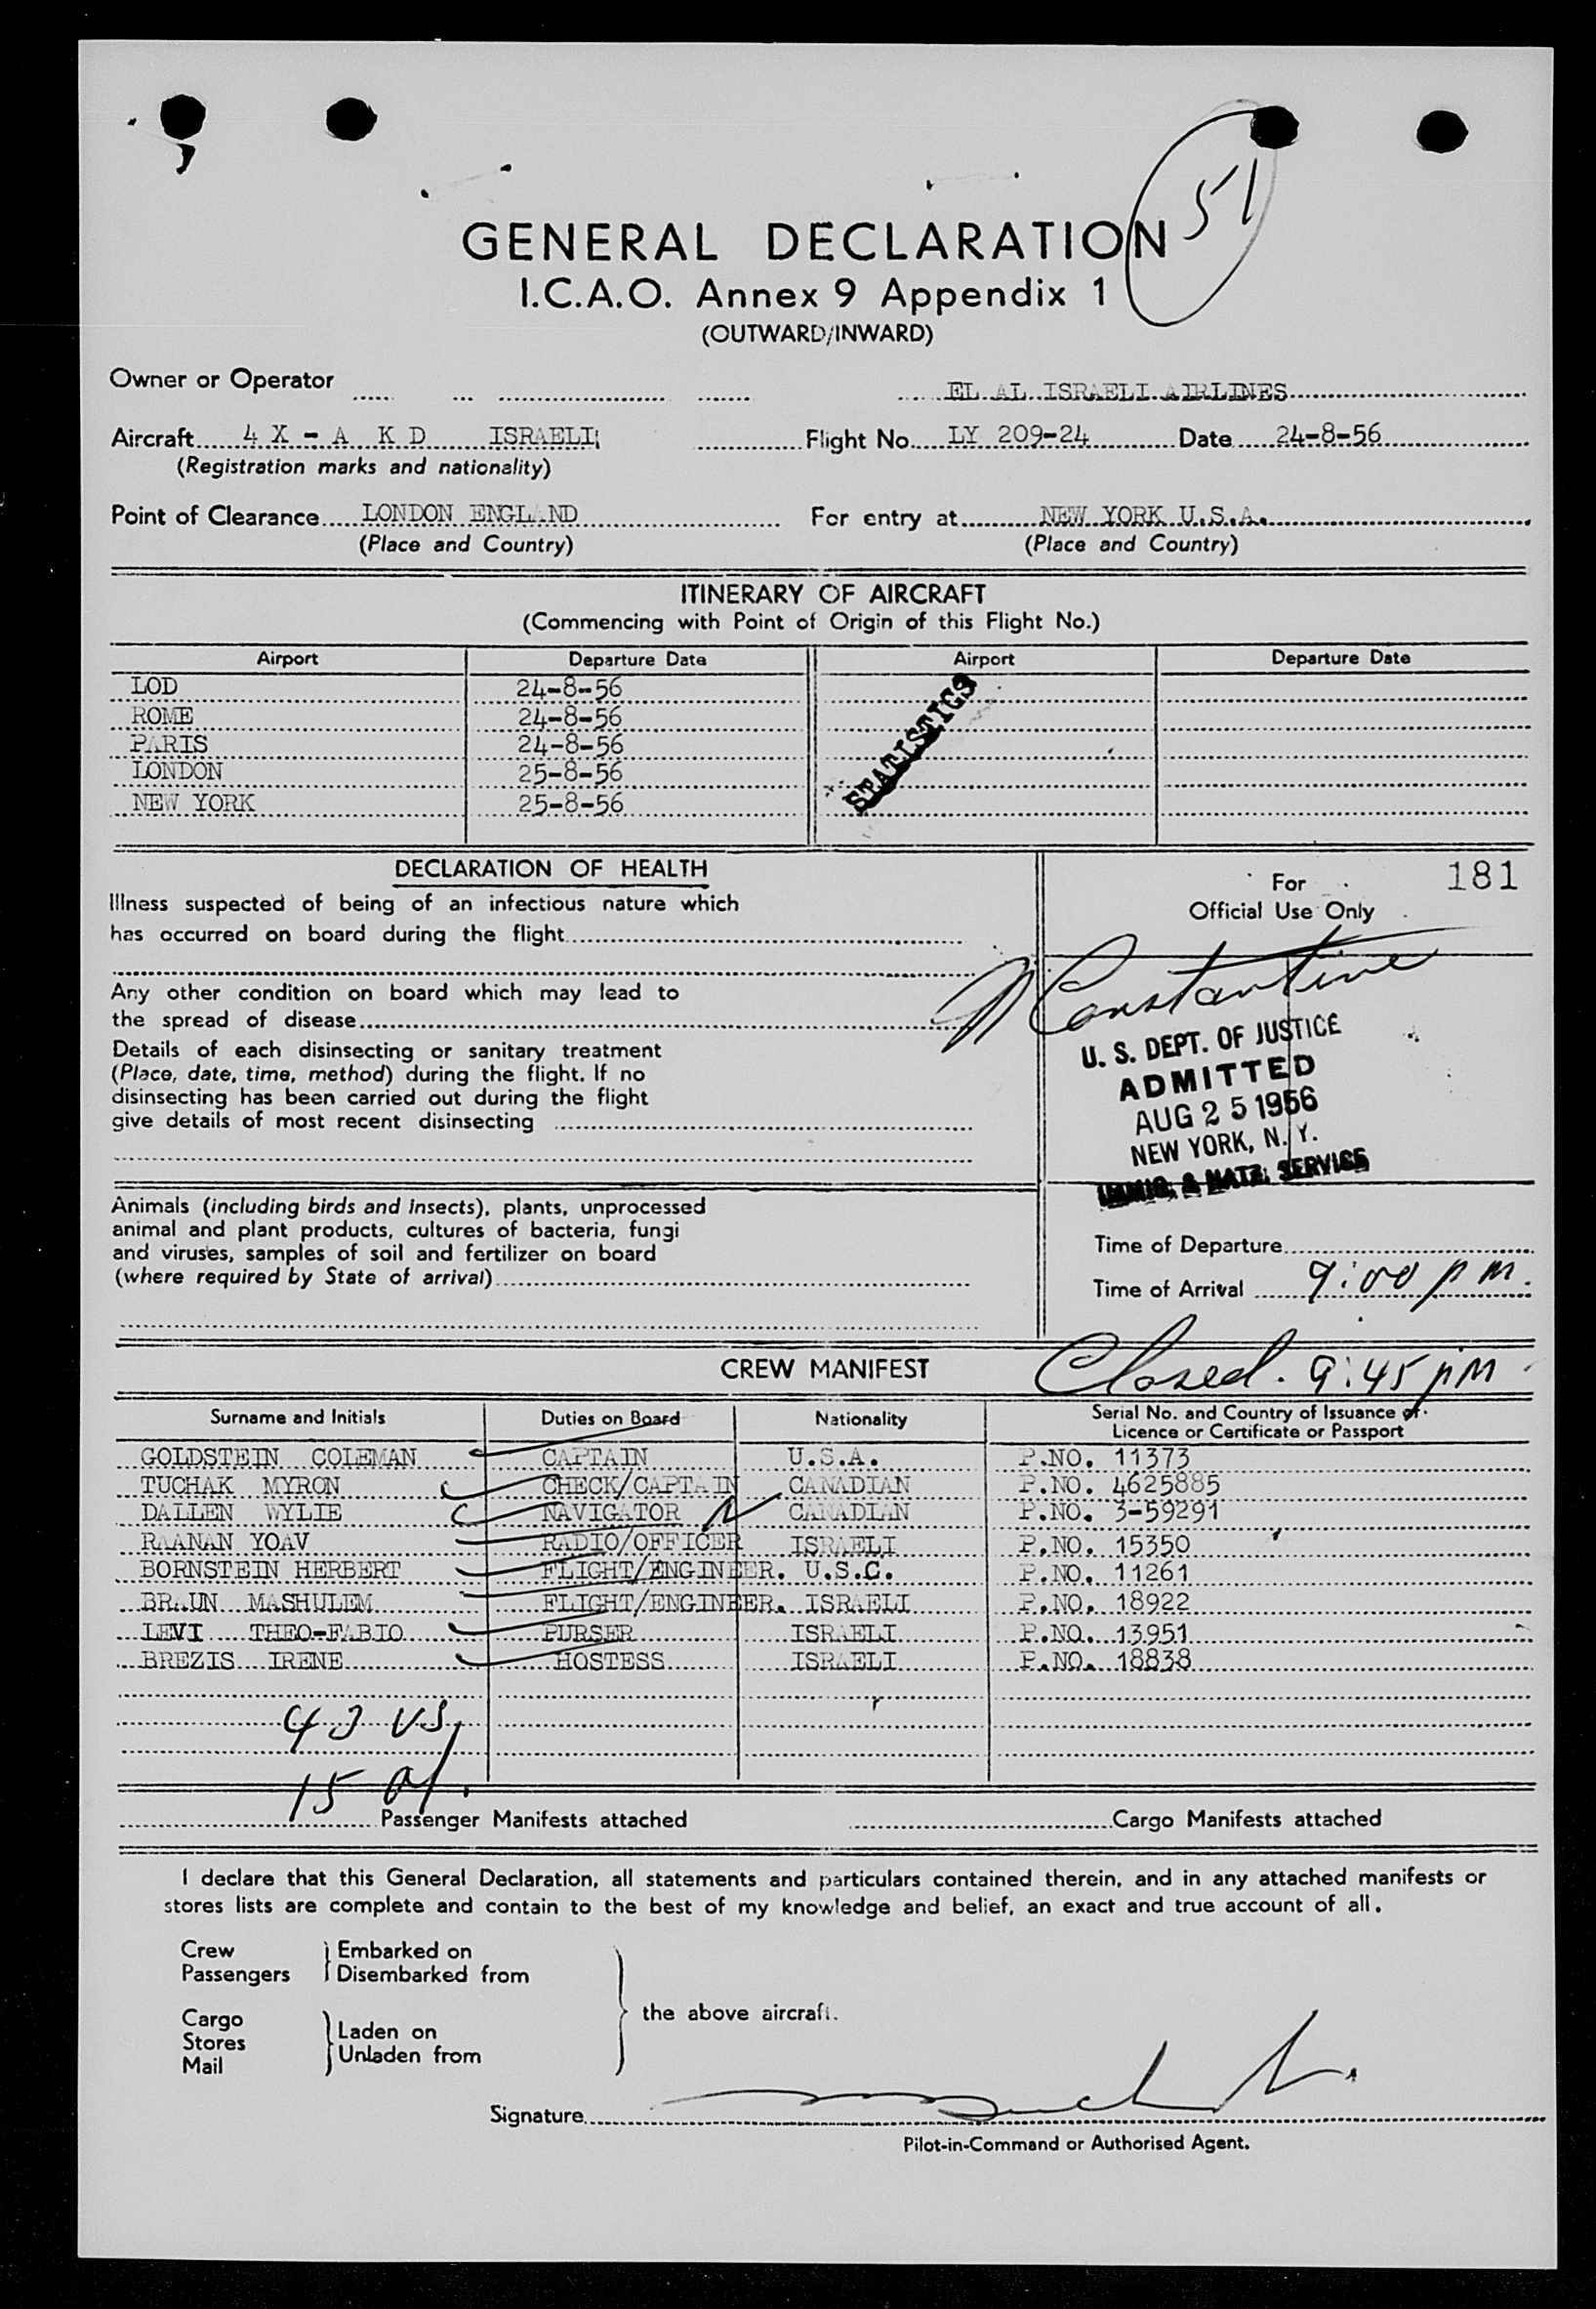 51
GENERAL DECLARATION
I.C.A.O. Annex 9 Appendix 1
(OUTWARD/INWARD)
Owner or Operator EL AL ISRAELI AIRLINES
Aircraft 4 X - A K D ISRAELI Flight No. LY 209-24 Date 24-8-56
(Registration marks and nationality)
Point of Clearance LONDON ENGLAND For entry at NEW YORK U.S.A.
(Place and Country) (Place and Country)
ITINERARY OF AIRCRAFT
(Commencing with Point of Origin of this Flight No.)
Airport Departure Date Airport Departure Date
LOD 24-8-56
ROME 24-8-56
PARIS 24-8-56
LONDON 25-8-56
NEW YORK 25-8-56
STATISTICS
DECLARATION OF HEALTH
Illness suspected of being of an infectious nature which
has occurred on board during the flight
Any other condition on board which may lead to
the spread of disease
Details of each disinsecting or sanitary treatment
(Place, date, time, method) during the flight. If no
disinsecting has been carried out during the flight
give details of most recent disinsecting
Animals (including birds and insects), plants, unprocessed
animal and plant products, cultures of bacteria, fungi
and viruses, samples of soil and fertilizer on board
(where required by State of arrival)
For 181
Official Use Only
Constantine
U. S. DEPT. OF JUSTICE
ADMITTED
AUG 25 1956
NEW YORK, N. Y.
IMMIG. & NATZ. SERVICE
Time of Departure
Time of Arrival 9:00 PM.
CREW MANIFEST Closed. 9:45 PM
Surname and Initials Duties on Board Nationality Serial No. and Country of Issuance of
Licence or Certificate or Passport
GOLDSTEIN COLEMAN CAPTAIN U.S.A. P.NO. 11373
TUCHAK MYRON CHECK/CAPTAIN CANADIAN P.NO. 4625885
DALLEN WYLIE NAVIGATOR CANADIAN P.NO. 3-59291
RAANAN YOAV RADIO/OFFICER ISRAELI P.NO. 15350
BORNSTEIN HERBERT FLIGHT/ENGINEER. U.S.C. P.NO. 11261
BRAUN MASHULEM FLIGHT/ENGINEER. ISRAELI P.NO. 18922
LEVI THEO-FABIO PURSER ISRAELI P.NO. 13951
BREZIS IRENE HOSTESS ISRAELI P.NO. 18838
43 US
15 al.
Passenger Manifests attached Cargo Manifests attached
I declare that this General Declaration, all statements and particulars contained therein, and in any attached manifests or
stores lists are complete and contain to the best of my knowledge and belief, an exact and true account of all.
Crew Embarked on
Passengers Disembarked from
the above aircraft.
Cargo Laden on
Stores Unladen from
Mail
Signature
Pilot-in-Command or Authorised Agent.